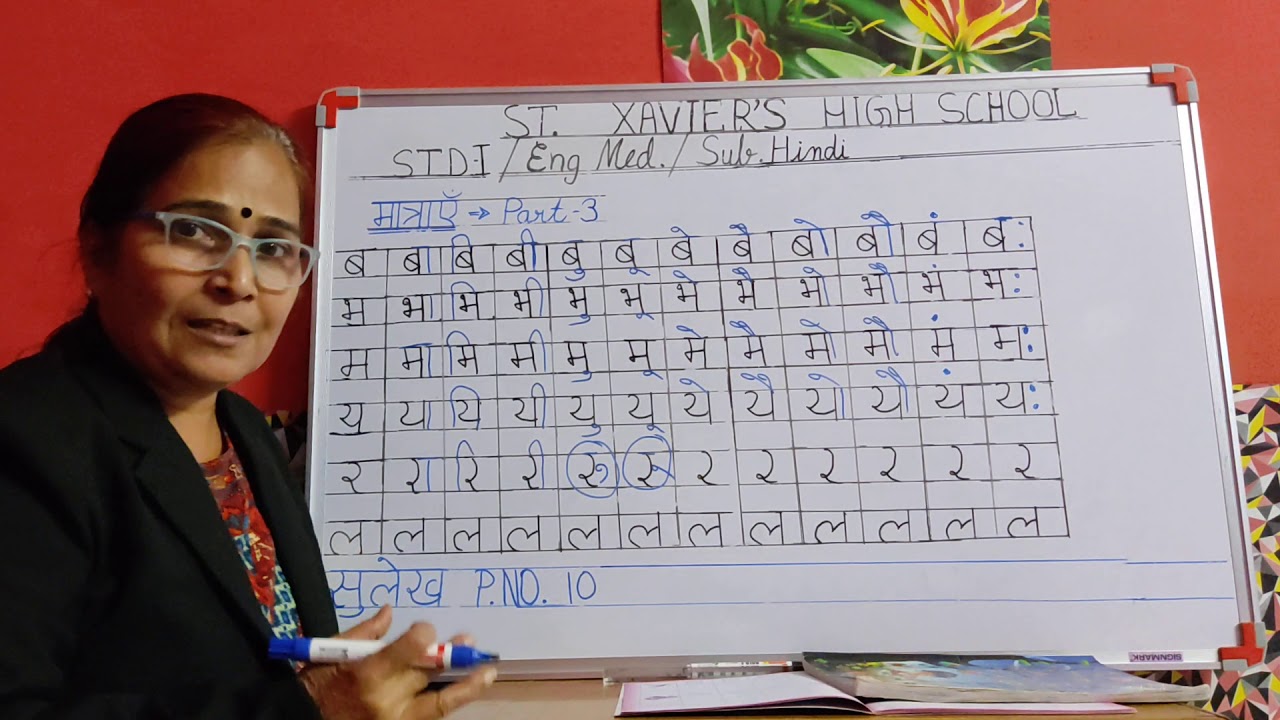 ST. XAVIER'S HIGH SCHOOL
STD:I / Eng Med. / Sub. Hindi
मात्राएँ → Part-3
ब बा बि बी बु बू बे बै बो बौ बं बः
भ भा भि भी भु भू भे भै भो भौ भं भः
म मा मि मी मु मू मे मै मो मौ मं मः
य या यि यी यु यू ये यै यो यौ यं यः
र रा रि री रु रू र र र र र र
ल ल ल ल ल ल ल ल ल ल ल ल
सुलेख P.NO. 10
SIGNMARK